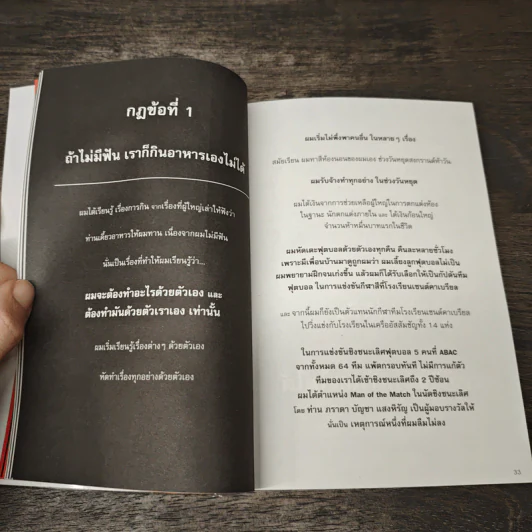 กฎข้อที่ 1
ถ้าไม่มีฟัน เราก็กินอาหารเองไม่ได้
ผมได้เรียนรู้ เรื่องการกิน จากเรื่องที่ผู้ใหญ่เล่าให้ฟังว่า
ท่านเคี้ยวอาหารให้ผมทาน เนื่องจากผมไม่มีฟัน
นั่นเป็นเรื่องที่ทำให้ผมเรียนรู้ว่า...
ผมจะต้องทำอะไรด้วยตัวเอง และ
ต้องทำมันด้วยตัวเราเอง เท่านั้น
ผมเริ่มเรียนรู้เรื่องต่างๆ ด้วยตัวเอง
หัดทำเรื่องทุกอย่างด้วยตัวเอง
ผมเริ่มไม่พึ่งพาคนอื่น ในหลายๆ เรื่อง
สมัยเรียน ผมทาสีห้องนอนของผมเอง ช่วงวันหยุดสงกรานต์ห้าวัน
ผมรับจ้างทำทุกอย่าง ในช่วงวันหยุด
ผมได้เงินจากการช่วยเหลือผู้ใหญ่ในการตกแต่งห้อง
ในฐานะ นักตกแต่งภายใน และ ได้เงินก้อนใหญ่
จำนวนห้าหมื่นบาทแรกในชีวิต
ผมหัดเตะฟุตบอลด้วยตัวเองทุกคืน คืนละหลายชั่วโมง
เพราะมีเพื่อนบ้านมาดูถูกผมว่า ผมเลี้ยงลูกฟุตบอลไม่เป็น
ผมพยายามฝึกจนเก่งขึ้น แล้วผมก็ได้รับเลือกให้เป็นกัปตันทีม
ฟุตบอล ในการแข่งขันกีฬาสีที่โรงเรียนเซนต์คาเบรียล
และ จากนั้นผมก็ยังเป็นตัวแทนนักกีฬาทีมโรงเรียนเซนต์คาเบรียล
ไปวิ่งแข่งกับโรงเรียนในเครืออัสสัมชัญทั้ง 14 แห่ง
ในการแข่งขันชิงชนะเลิศฟุตบอล 5 คนที่ ABAC
จากทั้งหมด 64 ทีม แพ้ตกรอบทันที ไม่มีการแก้ตัว
ทีมของเราได้เข้าชิงชนะเลิศถึง 2 ปีซ้อน
ผมได้ตำแหน่ง Man of the Match ในนัดชิงชนะเลิศ
โดย ท่าน ภราดา บัญชา แสงหิรัญ เป็นผู้มอบรางวัลให้
นั่นเป็น เหตุการณ์หนึ่งที่ผมลืมไม่ลง